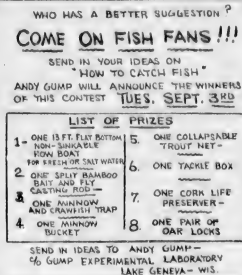 WHO HAS A BETTER SUGGESTION?
COME ON FISH FANS!!!
SEND IN YOUR IDEAS ON
"HOW TO CATCH FISH"
ANDY GUMP WILL ANNOUNCE THE WINNERS
OF THIS CONTEST TUES. SEPT. 3RD
LIST OF PRIZES
1- ONE 13 FT. FLAT BOTTOM
NON-SINKABLE
ROW BOAT
FOR FRESH OR SALT WATER
2. ONE SPLIT BAMBOO
BAIT AND FLY
CASTING ROD-
3. ONE MINNOW
AND CRAWFISH TRAP
4. ONE MINNOW
BUCKET
5. ONE COLLAPSABLE
TROUT NET-
6. ONE TACKLE BOX
7. ONE CORK LIFE
PRESERVER-
8. ONE PAIR OF
OAR LOCKS
SEND IN IDEAS TO ANDY GUMP-
C/O GUMP EXPERIMENTAL LABORATORY
LAKE GENEVA- WIS.